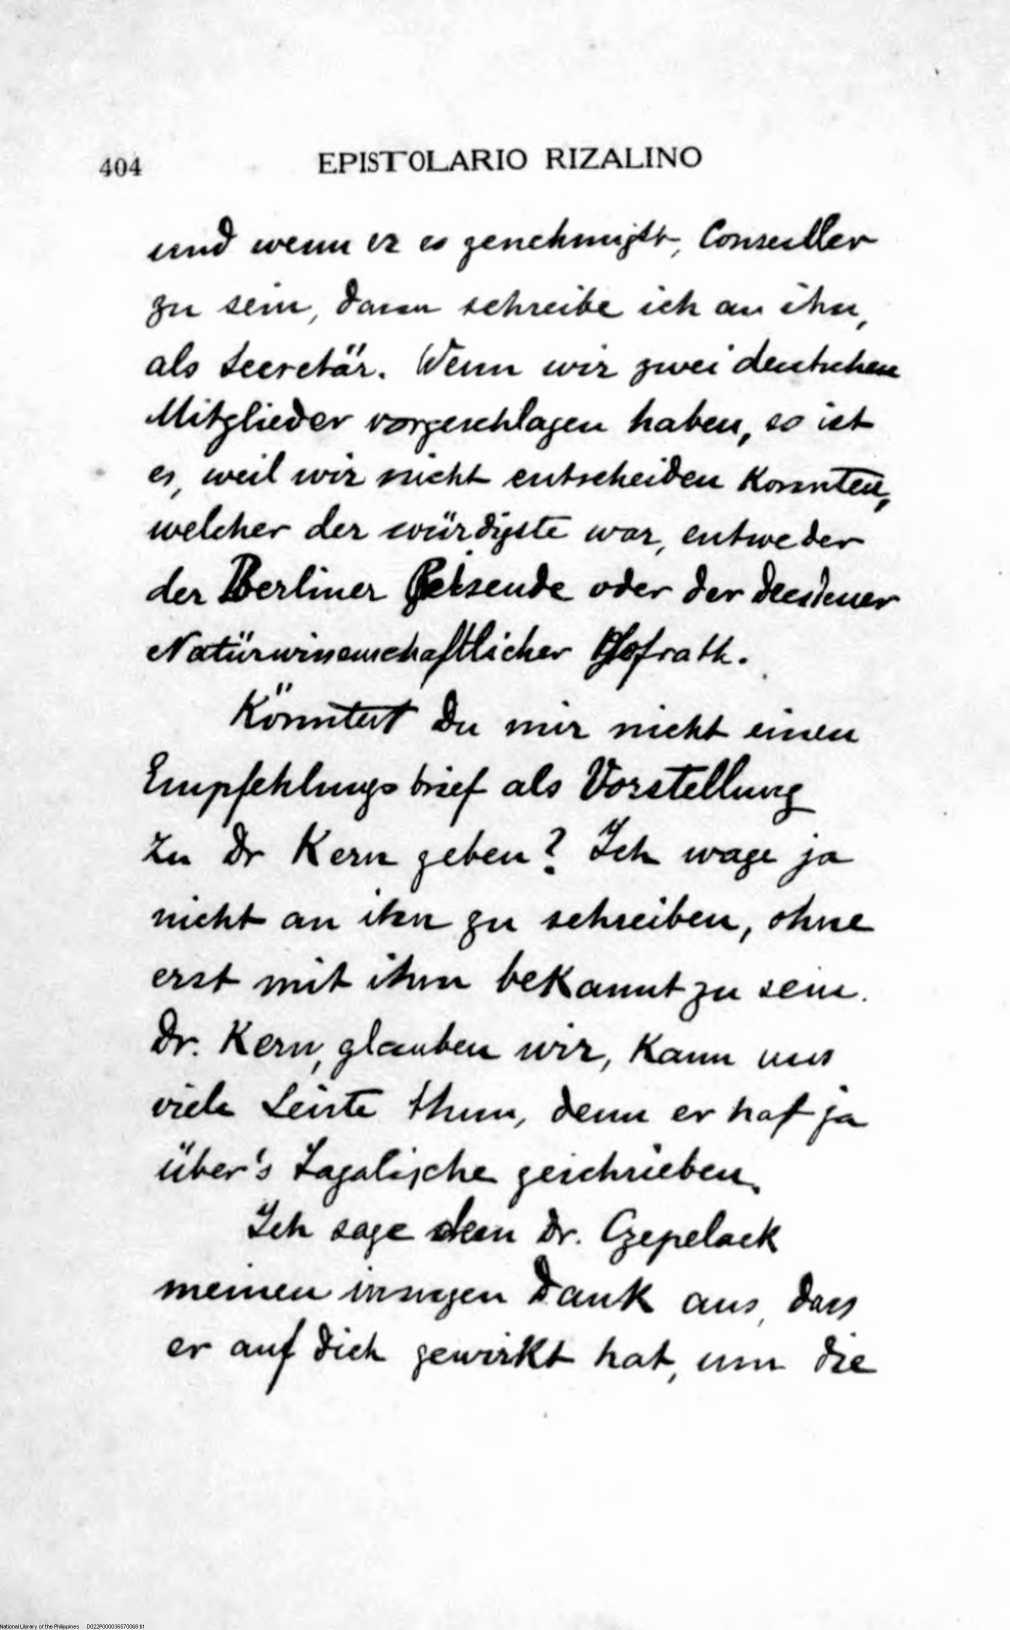 404 EPISTOLARIO RIZALINO
und wenn er es genehmigtt, Conseiller
zu sein, dann schreibe ich an ihn,
als Secretär. Wenn wir zwei deutschen
Mitglieder vorgeschlagen haben, so ist
es, weil wir nicht entscheiden konnten,
welcher der würdigste war, entweder
der Berliner Reisende oder der dresdener
Natürwissenschaftlicher Hofrath.
Könntest Du mir nicht einen
Empfehlungsbrief als Vorstellung
zu Dr Kern geben? Ich wage ja
nicht an ihn zu schreiben, ohne
erst mit ihm bekannt zu sein.
Dr. Kern, glauben wir, kann uns
viele Leiste thun, denn er hat ja
über's Tagalische geschrieben.
Ich sage dem Dr. Czepelack
meinen innigen Dank aus, dass
er auf Dich gewirkt hat, um die
National Library of the Philippines